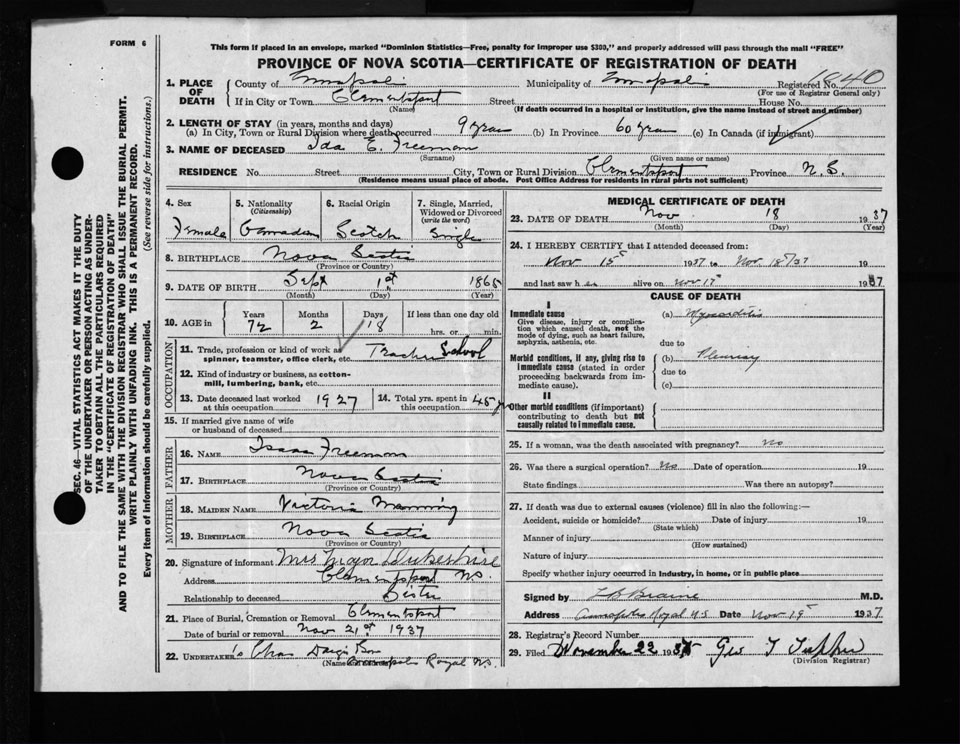 FORM 6
This form if placed in an envelope, marked "Dominion Statistics—Free, penalty for improper use $300," and properly addressed will pass through the mail "FREE"
PROVINCE OF NOVA SCOTIA—CERTIFICATE OF REGISTRATION OF DEATH
1. PLACE OF DEATH
County of Annapolis Municipality of Annapolis Registered No. 1940
(For use of Registrar General only)
If in City or Town Clementsport Street House No.
(Name) (If death occurred in a hospital or institution, give the name instead of street and number)
2. LENGTH OF STAY (in years, months and days)
(a) In City, Town or Rural Division where death occurred 9 years (b) In Province 60 years (c) In Canada (if immigrant)
3. NAME OF DECEASED Ida E. Freeman
(Surname) (Given name or names)
RESIDENCE No. Street City, Town or Rural Division Clementsport Province N.S.
(Residence means usual place of abode. Post Office Address for residents in rural parts not sufficient)
4. Sex Female
5. Nationality (Citizenship) Canadian
6. Racial Origin Scotch
7. Single, Married, Widowed or Divorced (write the word) Single
8. BIRTHPLACE Nova Scotia
(Province or Country)
9. DATE OF BIRTH Sept 1st 1865
(Month) (Day) (Year)
10. AGE in Years 72 Months 2 Days 18 If less than one day old hrs. or min.
OCCUPATION
11. Trade, profession or kind of work as spinner, teamster, office clerk, etc. Teacher School
12. Kind of industry or business, as cotton-mill, lumbering, bank, etc.
13. Date deceased last worked at this occupation 1927
14. Total yrs. spent in this occupation 45 yrs
15. If married give name of wife or husband of deceased
FATHER
16. NAME Isaac Freeman
17. BIRTHPLACE Nova Scotia
(Province or Country)
MOTHER
18. MAIDEN NAME Victoria Manning
19. BIRTHPLACE Nova Scotia
(Province or Country)
20. Signature of informant Mrs Major Dukeshire
Address Clementsport NS.
Relationship to deceased Sister
21. Place of Burial, Cremation or Removal Clementsport
Date of burial or removal Nov 21st 1937
22. UNDERTAKER's Chas Son
(Name Annapolis Royal NS.
MEDICAL CERTIFICATE OF DEATH
23. DATE OF DEATH Nov 18 1937
(Month) (Day) (Year)
24. I HEREBY CERTIFY that I attended deceased from:
Nov 15th 1937 to Nov. 18th/37 19
and last saw h er alive on Nov 17th 1937
CAUSE OF DEATH
I
Immediate cause
Give disease, injury or complication which caused death, not the mode of dying, such as heart failure, asphyxia, asthenia, etc.
(a) Myocarditis
due to
Morbid conditions, if any, giving rise to immediate cause (stated in order proceeding backwards from immediate cause).
(b) Pleurisy
due to
(c)
II
Other morbid conditions (if important) contributing to death but not causally related to immediate cause.
25. If a woman, was the death associated with pregnancy? No
26. Was there a surgical operation? No Date of operation 19
State findings Was there an autopsy?
27. If death was due to external causes (violence) fill in also the following:—
Accident, suicide or homicide? Date of injury 19
(State which)
Manner of injury
(How sustained)
Nature of injury
Specify whether injury occurred in industry, in home, or in public place
Signed by L B Braine M.D.
Address Annapolis Royal N.S Date Nov 19th 1937
28. Registrar's Record Number
29. Filed November 22 1937 Geo T Tupper
(Division Registrar)
SEC. 46—VITAL STATISTICS ACT MAKES IT THE DUTY
OF THE UNDERTAKER OR PERSON ACTING AS UNDER-
TAKER TO OBTAIN ALL THE PARTICULARS REQUIRED
IN THE "CERTIFICATE OF REGISTRATION OF DEATH"
AND TO FILE THE SAME WITH THE DIVISION REGISTRAR WHO SHALL ISSUE THE BURIAL PERMIT.
WRITE PLAINLY WITH UNFADING INK. THIS IS A PERMANENT RECORD.
Every item of information should be carefully supplied. (See reverse side for instructions.)